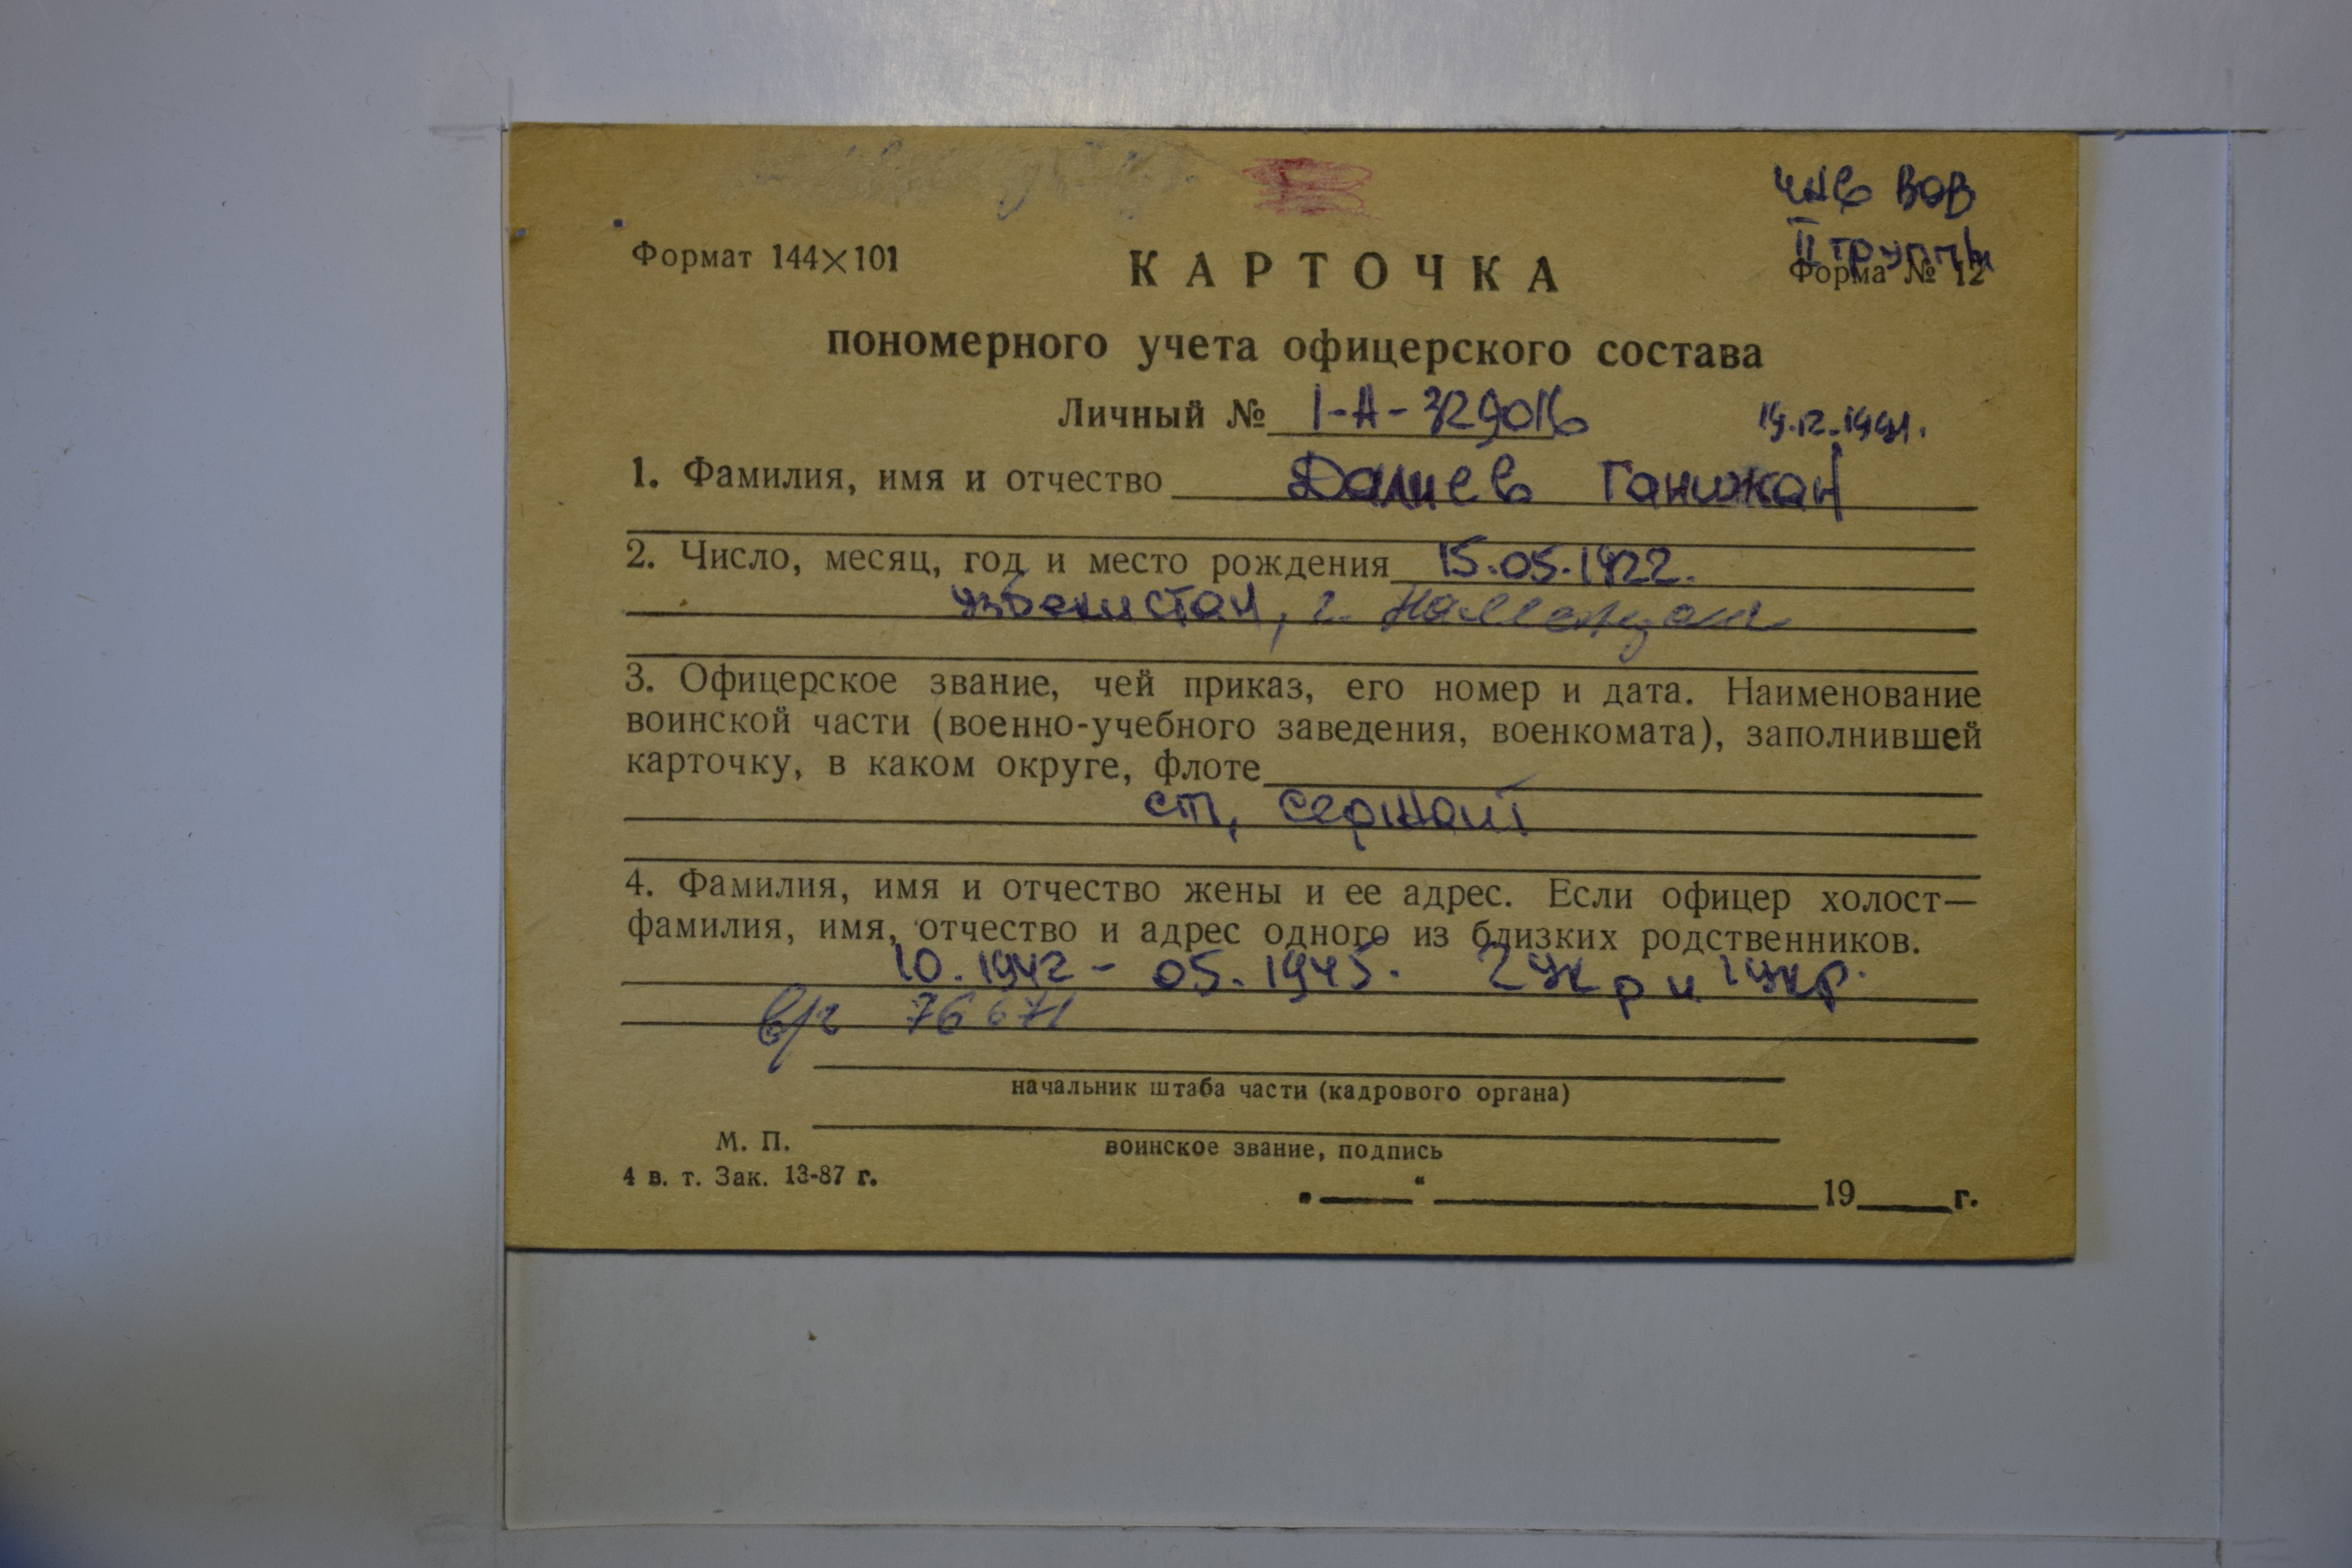 инв ВОВ
II группы
Формат 144×101
КАРТОЧКА
Форма № 12
пономерного учета офицерского состава
Личный № I-А-329016 19.12.1991.
1. Фамилия, имя и отчество Далиев Ганижан
2. Число, месяц, год и место рождения 15.05.1922.
Узбекистан, г. Наманган
3. Офицерское звание, чей приказ, его номер и дата. Наименование
воинской части (военно-учебного заведения, военкомата), заполнившей
карточку, в каком округе, флоте
ст, сержант
4. Фамилия, имя и отчество жены и ее адрес. Если офицер холост—
фамилия, имя, отчество и адрес одного из близких родственников.
10.1942 - 05.1945. 2 Укр и 1 Укр.
76671
начальник штаба части (кадрового органа)
М. П.
воинское звание, подпись
4 в. т. Зак. 13-87 г.
„ “ 19 г.